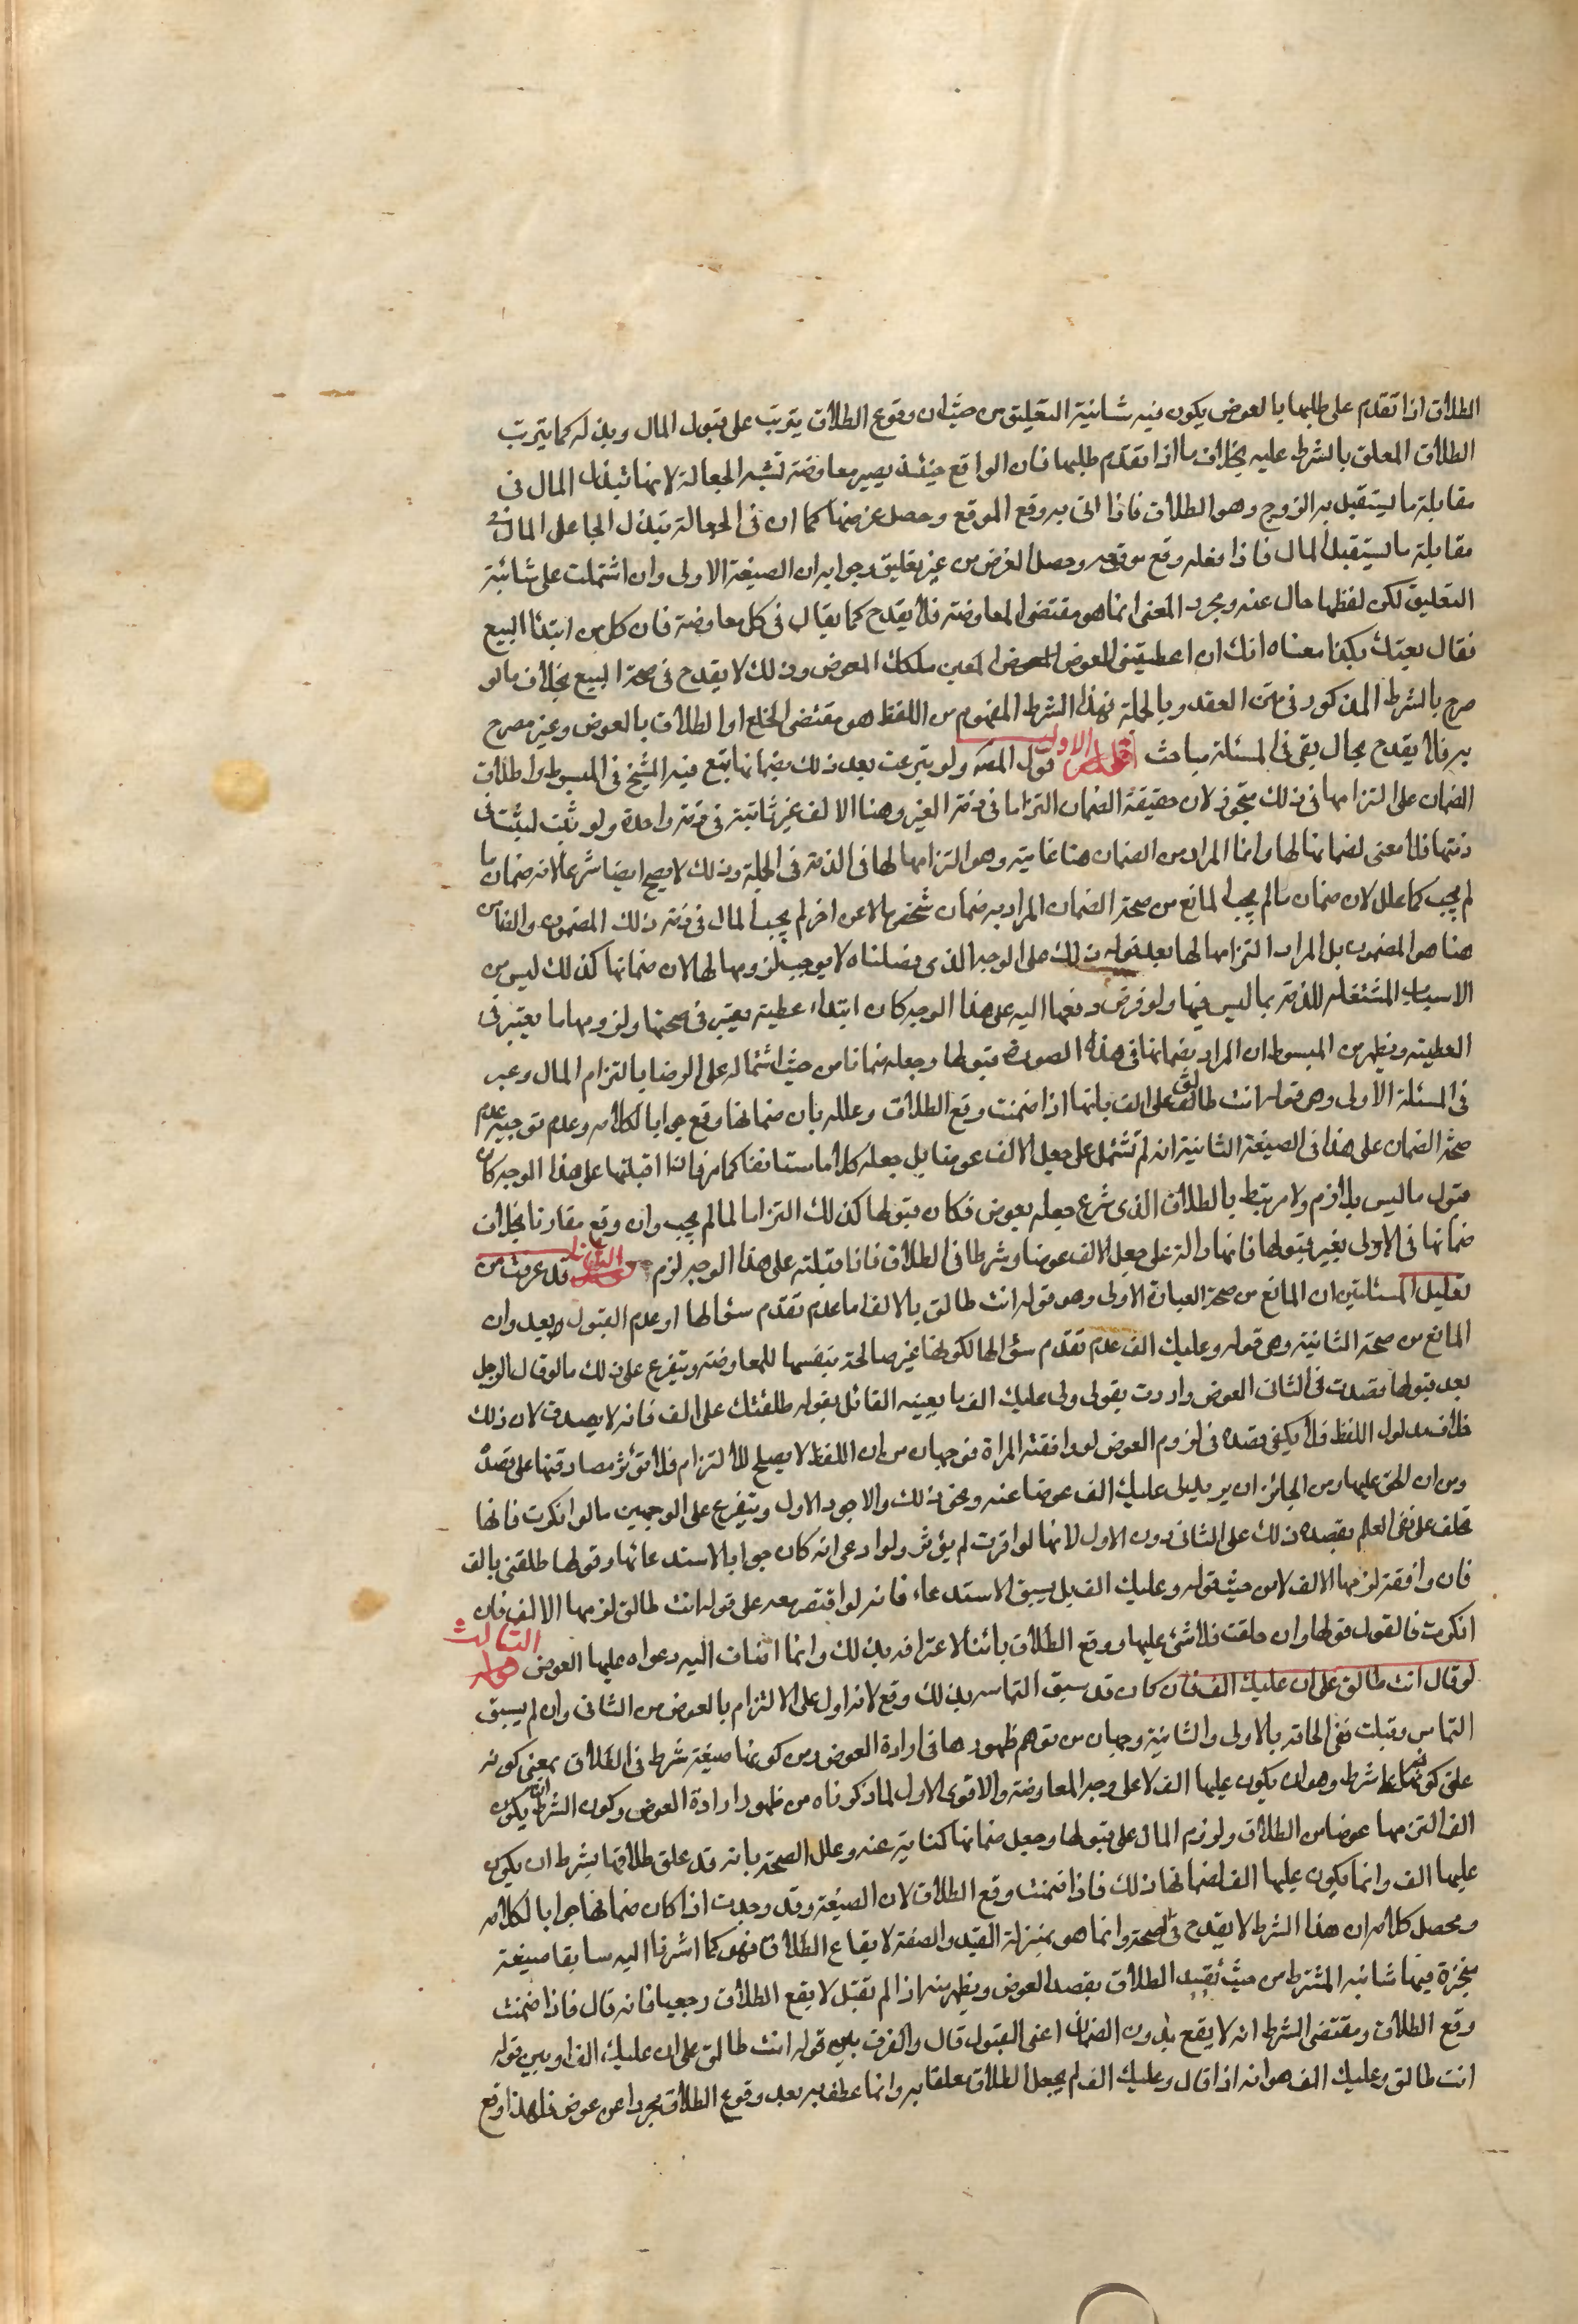 الطلاق اذا تقدم على طلبها بالعوض يكون فيه شائبة التعليق من حيث ان وقوع الطلاق يترتب على قبول المال وبذله كما يترتب
الطلاق المعلق بالشرط عليه بخلاف ما اذا تقدم طلبها فان الواقع حينئذ يصير معاوضة تشبه الجعالة لانها تبذل المال في
مقابلة ما يستقبل به الزوج وهو الطلاق فاذا اتى به وقع الموقع وحصل غرضها كما ان في الجعالة يبذل الجاعل المال في
مقابلة ما يستقبل المال فاذا فعله وقع موقعه وحصل الغرض من غير تعليق وجوابه ان الصيغة الاولى وان اشتملت على شائبة
التعليق لكن لفظها خال عنه ومجرد المعنى انما هو مقتضى المعاوضة فلا يقدح كما يقال في كل معاوضة فان كل من ابتدأ البيع
فقال بعتك بكذا معناه انك ان اعطيتني العوض المعين ملكك المعوض وذلك لا يقدح في صحة البيع بخلاف ما لو
صرح بالشرط المذكور في متن العقد وبالجملة فهذا الشرط المفهوم من اللفظ هو مقتضى الخلع او الطلاق بالعوض وغير مصرح
به فلا يقدح بحال بقى في المسئلة مباحث الاول قول المصه ولو تبرعت بعد ذلك بضمانها يتبع فيه الشيخ في المبسوط واطلاق
الضمان على التزامها في ذلك تجوز لان حقيقة الضمان التزاما في ذمة الغير وهنا الالف غير ثابتة في ذمة واحدة ولو ثبت لبثت في
ذمتها فلا معنى لضمانها لها وانما المراد من الضمان هنا غايته وهو التزامها لها في الذمة في الجملة وذلك لا يصح ايضا شرعا لانه ضمان ما
لم يجب كما علل لان ضمان ما لم يجب المانع من صحة الضمان المراد به ضمان شخص مالا عن اخر لم يجب المال في ذمة ذلك المضمون والضامن
هنا هو المضمون بل المراد التزامها لها بعد قوله ذلك على الوجه الذي فصلناه لا يوجب لزومها لها لان ضمانها كذلك ليس من
الاسباب المشتغلة للذمة بما ليس فيها ولو فرض دفعها اليه على هذا الوجه كان ابتداء عطية يعتبر في صحتها ولزومها ما يعتبر في
العطية ويظهر من المبسوط ان المراد بضمانها في هذه الصورة قبولها وجعله ضمانا من حيث اشتماله على الرضا بالتزام المال وعبر
في المسئلة الاولى وهي قوله انت طالق على الف بانها اذا ضمنت وقع الطلاق وعلله بان ضمانها وقع جوابا لكلامه وعدم توجيه عدم
صحة الضمان على هذا في الصيغة الثانية انه لم تشتمل على جعل الالف عوضا بل جعله كلاما مستانفا كما مر فاذا قبلتها على هذا الوجه كان
قبول ما ليس بلازم ولا مرتبط بالطلاق الذي شرع جعله بعوض فكان قبولها كذلك التزاما لما لم يجب وان وقع مقارنا بخلاف
ضمانها في الاولى بغير قبولها فانها دالة على جعل الالف عوضا وشرطا في الطلاق فاذا قبلته على هذا الوجه لزم الثاني قد عرفت من
تعليل المسئلتين ان المانع من صحة العبارة الاولى وهو قوله انت طالق بالالف اما عدم تقدم سؤالها او عدم القبول بعد وان
المانع من صحة الثانية وهي قوله وعليك الف عدم تقدم سؤالها لكونها غير صالحة بنفسها للمعاوضة ويتفرع على ذلك ما لو قال الرجل
بعد قبولها قصدت في الثاني العوض واردت بقولي ولي عليك الف ما يعينه القائل بقوله طلقتك على الف فانه لا يصدق لان ذلك
خلاف مدلول اللفظ فلا يكفي قصده في لزوم العوض لو وافقته المراة فوجهان من ان اللفظ لا يصلح للالتزام فلا تؤثر مصادقتها على قصده
ومن ان الحق عليها ومن الجائز ان يريد بلي عليك الف عوضا عنه ونحو ذلك والاجود الاول ويتفرع على الوجهين ما لو انكرت فانها
تحلف على نفى العلم بقصده ذلك على الثاني دون الاول لانها لو اقرت لم يؤثر ولو ادعى انه كان جوابا لاستدعائها وقولها طلقني بالف
فان وافقته لزمها الالف لا من حيث قوله وعليك الف بل بسبق الاستدعاء فانه لو اقتصر معه على قوله انت طالق لزمها الالف فان
انكرت فالقول قولها وان حلفت فلا شئ عليها ووقع الطلاق بائنا لاعترافه بذلك وانما انضاف اليه دعواه عليها العوض الثالث
لو قال انت طالق على ان عليك الف فان كان قد سبق التماسه بذلك وقع لانه اول على الالتزام بالعوض من الثاني وان لم يسبق
التماس وقبلت ففي الحاقه بالاولى والثانية وجهان من توهم ظهورها في ارادة العوض ومن كونها صيغة شرط في الطلاق بمعنى كونه
على كونها شرط وهو ان يكون عليها الف لا على وجه المعاوضة والاقوى الاول لما ذكرناه من ظهور ارادة العوض وكون الشرط ان يكون
الف التزمها عوضا من الطلاق ولزوم المال على قبولها وجعل ضمانها كناية عنه وعلل الصحة بانه قد علق طلاقها بشرط ان يكون
عليها الف وانما يكون عليها الف لضمانها ذلك فاذا ضمنت وقع الطلاق لان الصيغة وقد وجدت اذا كان ضمانها جوابا لكلامه
ومحصل كلامه ان هذا الشرط لا يقدح في الصحة وانما هو بمنزلة القيد والصفة لايقاع الطلاق فهو كما اشرنا اليه سابقا صيغة
منجزة فيها شائبة المشترط من حيث تقييد الطلاق بقصد العوض ويظهر منه اذا لم تقبل لا يقع الطلاق رجعيا فانه قال فاذا ضمنت
وقع الطلاق ومقتضى الشرط انه لا يقع بدون الضمان اعني القبول قال والفرق بين قوله انت طالق على ان عليك الف او بين قوله
انت طالق وعليك الف هو انه اذا قال وعليك الف لم يجعل الطلاق معلقا به وانما عطف به بعد وقوع الطلاق مجردا عن عوض فلهذا وقع